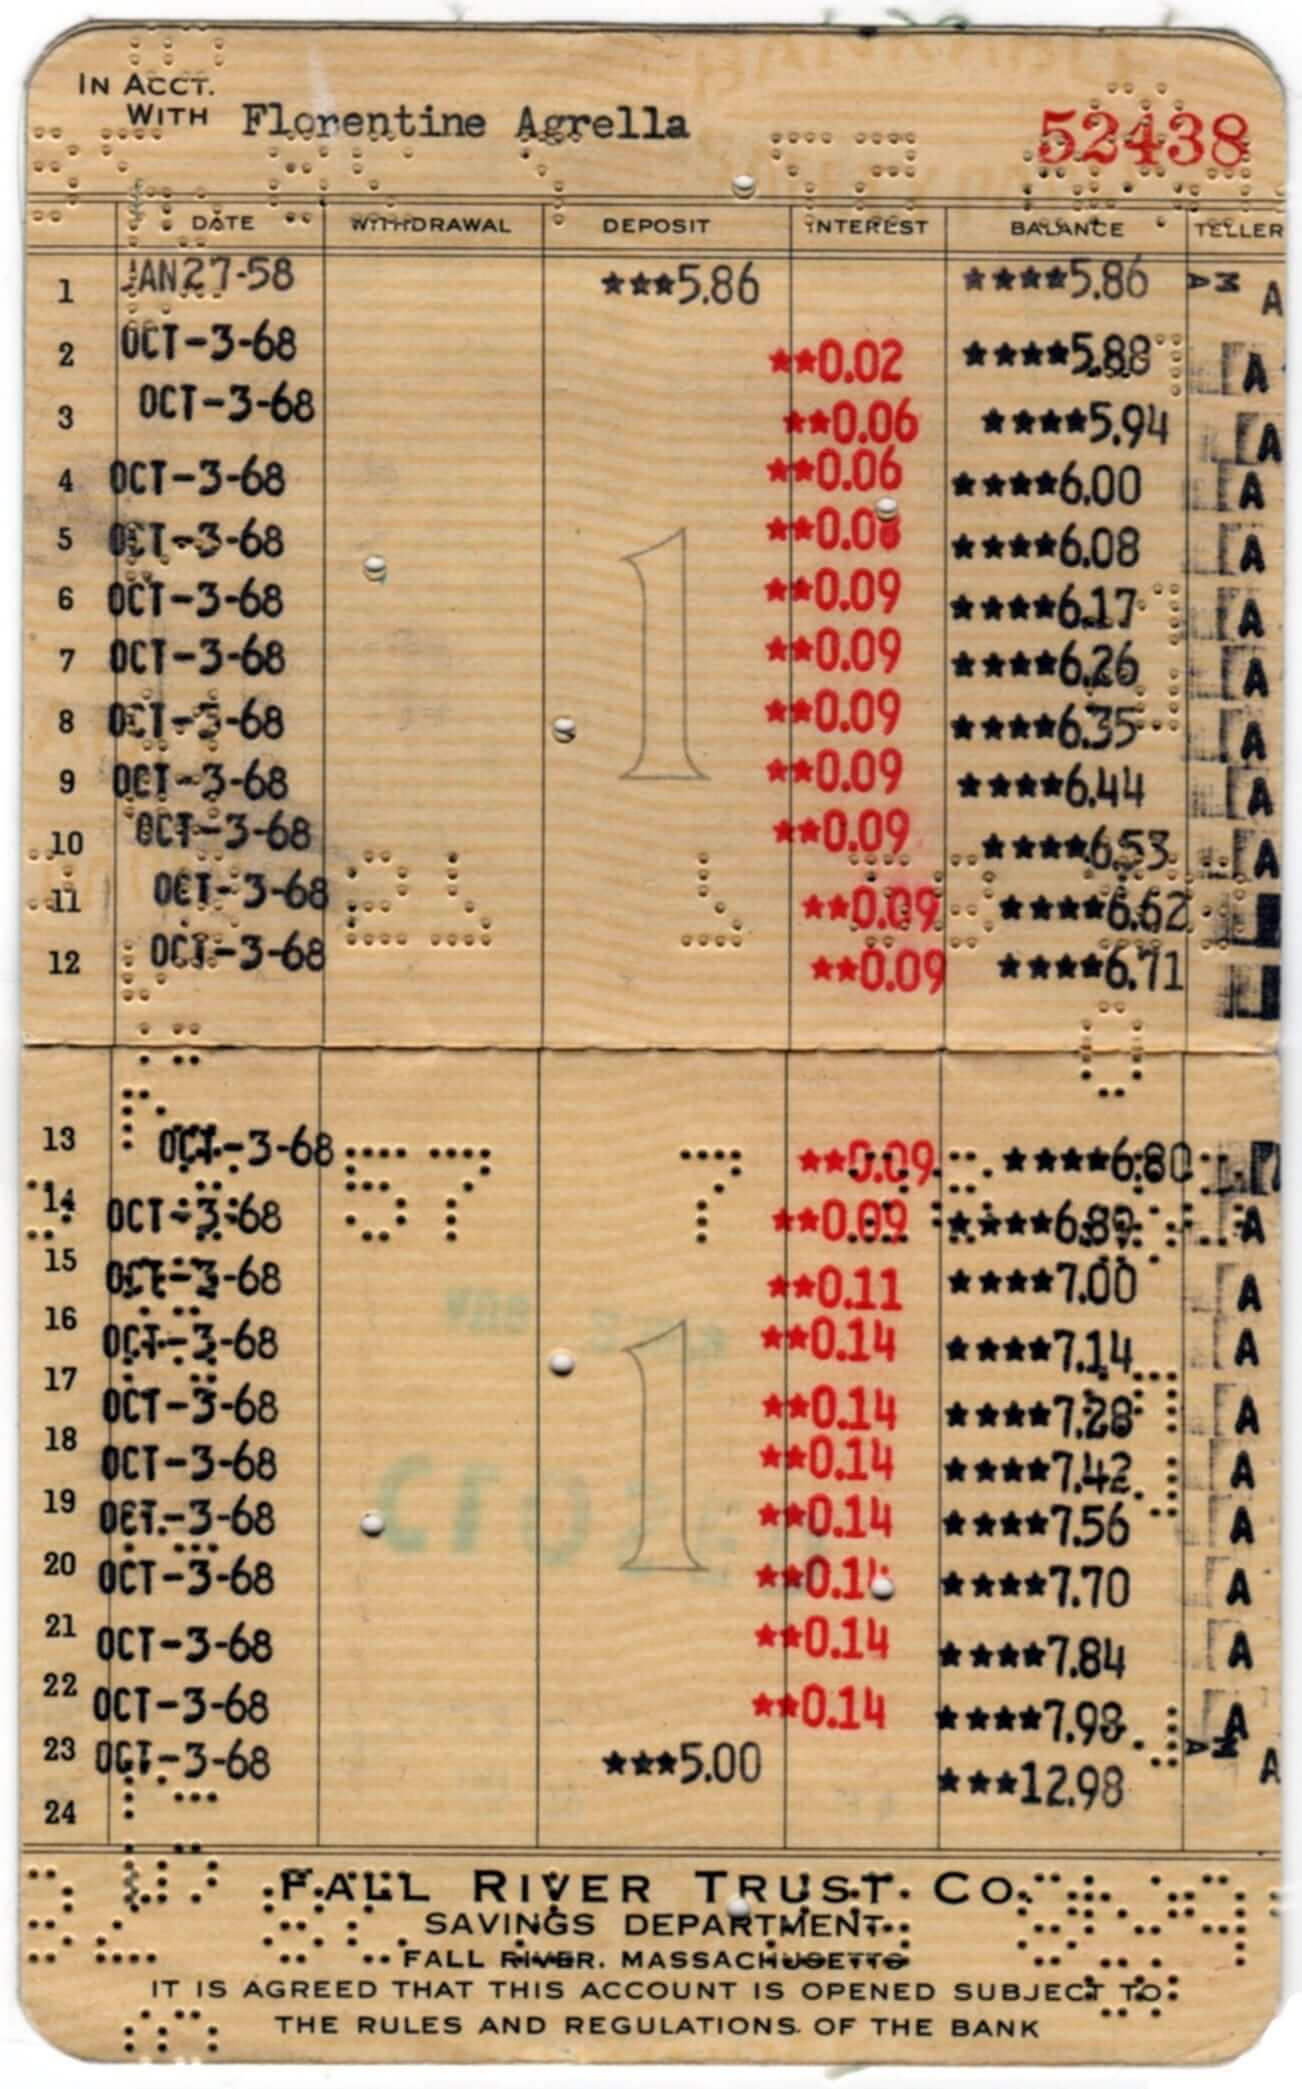 IN ACCT.
WITH Florentine Agrella 52438
DATE WITHDRAWAL DEPOSIT INTEREST BALANCE TELLER
1 JAN 27-58 ***5.86 ****5.86 MA A
2 OCT-3-68 **0.02 ****5.88 A
3 OCT-3-68 **0.06 ****5.94 A
4 OCT-3-68 **0.06 ****6.00 A
5 OCT-3-68 **0.08 ****6.08 A
6 OCT-3-68 **0.09 ****6.17 A
7 OCT-3-68 **0.09 ****6.26 A
8 OCT-3-68 **0.09 ****6.35 A
9 OCT-3-68 **0.09 ****6.44 A
10 OCT-3-68 **0.09 ****6.53 A
11 OCT-3-68 **0.09 ****6.62
12 OCT-3-68 **0.09 ****6.71
1
13 OCT-3-68 **0.09 ****6.80
14 OCT-3-68 **0.09 ****6.89 A
15 OCT-3-68 **0.11 ****7.00 A
16 OCT-3-68 **0.14 ****7.14 A
17 OCT-3-68 **0.14 ****7.28 A
18 OCT-3-68 **0.14 ****7.42 A
19 OCT-3-68 **0.14 ****7.56 A
20 OCT-3-68 **0.14 ****7.70 A
21 OCT-3-68 **0.14 ****7.84 A
22 OCT-3-68 **0.14 ****7.98 A
23 OCT-3-68 ***5.00 ***12.98 MA A
24
1
FALL RIVER TRUST CO.
SAVINGS DEPARTMENT
FALL RIVER. MASSACHUSETTS
IT IS AGREED THAT THIS ACCOUNT IS OPENED SUBJECT TO
THE RULES AND REGULATIONS OF THE BANK